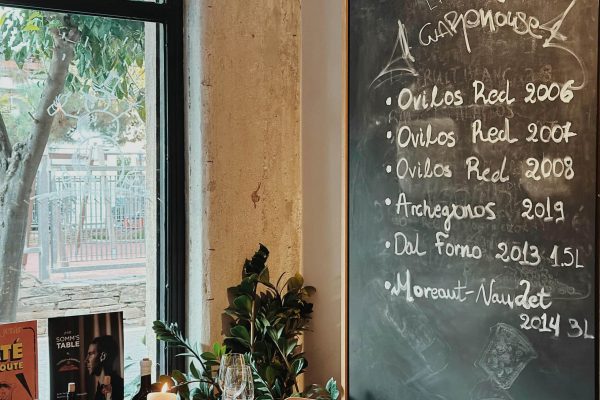 Warphouse
• Ovilos Red 2006
• Ovilos Red 2007
• Ovilos Red 2008
• Archegonos 2019
• Dal Forno 2013 1.5L
• Moreaut-Naudet
2014 3L
SOMM'S
TABLE